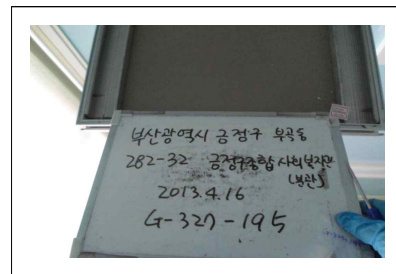 부산광역시 금정구 부곡동
282-32 금정구종합사회복지관
(본관)
2013.4.16
G-327-195